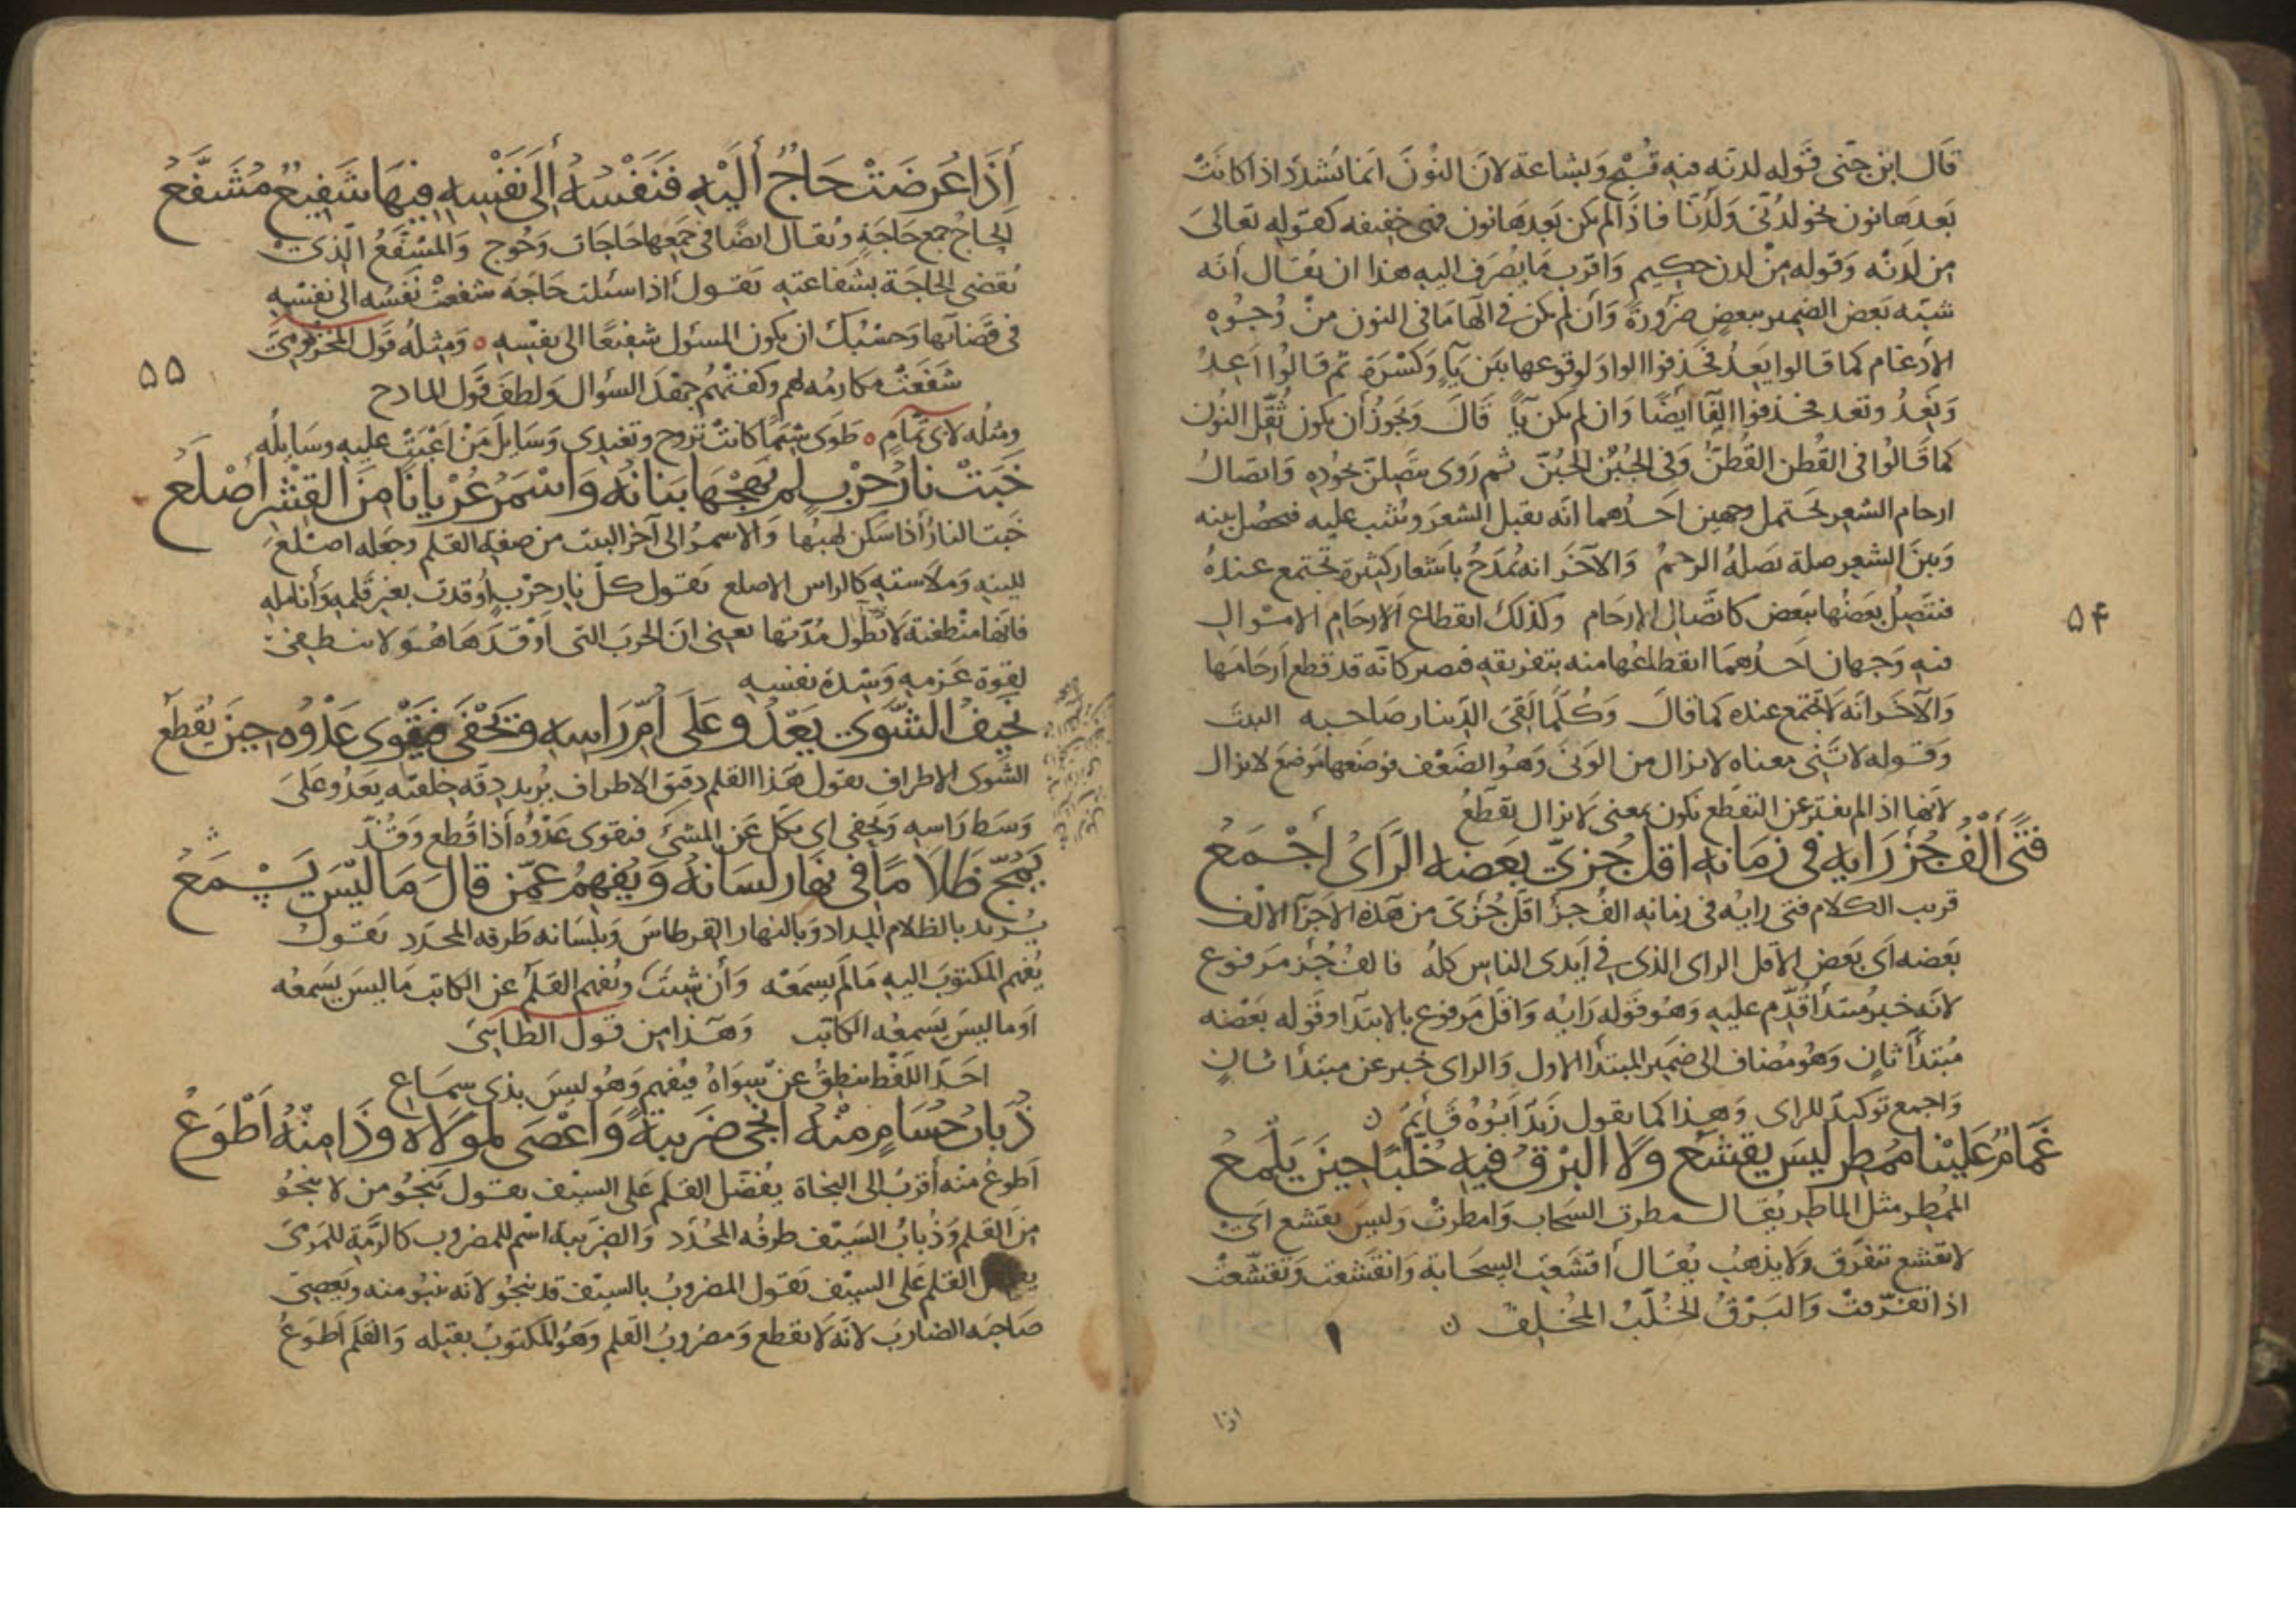 قال ابن جنى قوله لدنه فيه قبح وبشاعة لان النون انما تشدد اذا كانت
بعدها نون نحو لدنّى ولدنّا فاذا لم يكن بعدها نون فهى خفيفه كقوله تعالى
من لدنه وقوله من لدن حكيم واقرب ما يصرف اليه هذا ان يقال أنه
شبّه بعض الضمير ببعض ضرورة وأن لم يكن في الها ما في النون من وجوه
الادغام كما قالوا يعد فحذفوا الواو لوقوعها بين ياء وكسرة ثم قالوا اعد
ونعد وتعد فحذفوا الفا ايضا وان لم يكن يآ قال ويجوز أن يكون ثقّل النون
كما قالوا فى القطن القطنّ وفى الجبن الجبنّ ثم روى يتصلن بجوده واتصال
ارحام الشعر يحتمل وجهين احدهما انه يقبل الشعر ويثيب عليه فيحصل بينه
وبين الشعر صلة تصله الرحم والآخر انه يمدح باشعار كثيرة تجتمع عنده
فيتصل بعضها ببعض كاتصال الارحام وكذلك انقطاع الارحام الاموال
فيه وجهان احدهما انقطاعها منه بتفريقه فيصير كانه قد قطع ارحامها
والآخر انه لا تجتمع عنده كما قال وكلما لقى الدينار صاحبه البيت
وقوله لا تنى معناه لا يزال من الونى وهو الضعف فوضعها موضع لا يزال
لانها اذا لم يفتر عن التقطع تكون بمعنى لا يزال يقطع
فتى ألف جزء رايه في زمانه اقل جزىّ بعضه الراى أجمع
قريب الكلام فتى رايه فى زمانه الف جزء اقل جزىء من هذه الاجزآ الالف
بعضه اى بعض الاقل الراى الذى فى أيدى الناس كله فالف جزء مرفوع
لانه خبر مبتدأ قدم عليه وهو قوله رايه واقل مرفوع بالابتدآ وقوله بعضه
مبتدأ ثان وهو مضاف الى ضمير المبتدأ الاول والراى خبر عن مبتدأ ثان
واجمع توكيد للراى وهذا كما يقول زيد ابوه قائم ن
غمام علينا ممطر ليس يقشع ولا البرق فيه خلبا حين يلمع
الممطر مثل الماطر يقال مطرت السحاب وامطرت وليس يقشع اى
لا يقشع يتفرق ولا يذهب يقال أقشعت السحابة وانقشعت وتقشّعت
اذا تفرقت والبرق الخلّب المخلف ن
اذا
٥٤
أذا عرضت حاج أليه فنفسه ألى نفسه فيها شفيع مشفع
الحاج جمع حاجة ويقال ايضا في جمعها حاجات وحوج والمشفع الذى
تقضى الحاجة بشفاعته يقول اذا سئلت حاجة شفعت نفسه الى نفسه
فى قضآيها وحسبك ان يكون المسئول شفيعا الى نفسه ه ومثله قول الخريمى
شفعت مكارمه لهم وكفتهم جهد السؤال ولطف قول المادح
ومثله لابى تمام ه طوى شيما كانت تروح وتغتدى وسايل من اعيت عليه وسايله
خبت نار حرب لم تهجها بنانه واسمر عريانا من القشر اصلع
خبت النار أذا سكن لهبها والاسمر الى آخر البيت من صفة القلم وجعله اصلع
للينه وملاسته كالراس الاصلع يقول كلّ نار حرب أوقدت بغير قلمه وأنامله
فانها منطفئة لا تطول مدتها يعنى ان الحرب التى اوقدها هو لا تنطفئ
لقوة عزمه وشدة نفسه
نحيف الشوى يعدو على امّ راسه ويحفى فيقوى عدوه حين يقطع
الشوى الاطراف يقول هذا القلم دقيق الاطراف يريد دقة خلقته يعدو على
وسط راسه ويحفى اى يكل عن المشى فيقوى عدوه أذا قطع وقد
يمجّ ظلاما في نهار لسانه ويفهم عمّن قال ما ليس يسمع
يريد بالظلام المداد وبالنهار القرطاس وبلسانه طرفه المحدد يقول
يفهم المكتوب اليه ما لم يسمعه وأن شئت ويفهم القلم عن الكاتب ما ليس يسمعه
او ما ليس يسمعه الكاتب وهذا من قول الطائى
احذ اللفظ ينطق عن سواه فيفهم وهو ليس بذى سماع
ذباب حسام منه انجى ضريبة واعصى لمولاه وذا منه اطوع
اطوع منه أقرب الى النجاة يفضّل القلم على السيف يقول ينجو من لا ينجو
من القلم وذباب السيف طرفه المحدد والضريبة اسم للمضروب كالرمية للمرمى
القلم على السيف يقول المضروب بالسيف قد ينجو لانه ينبو منه ويعصى
صاحبه الضارب لانه لا يقطع ومضروب القلم وهو المكتوب بقتله والقلم اطوع
٥٥